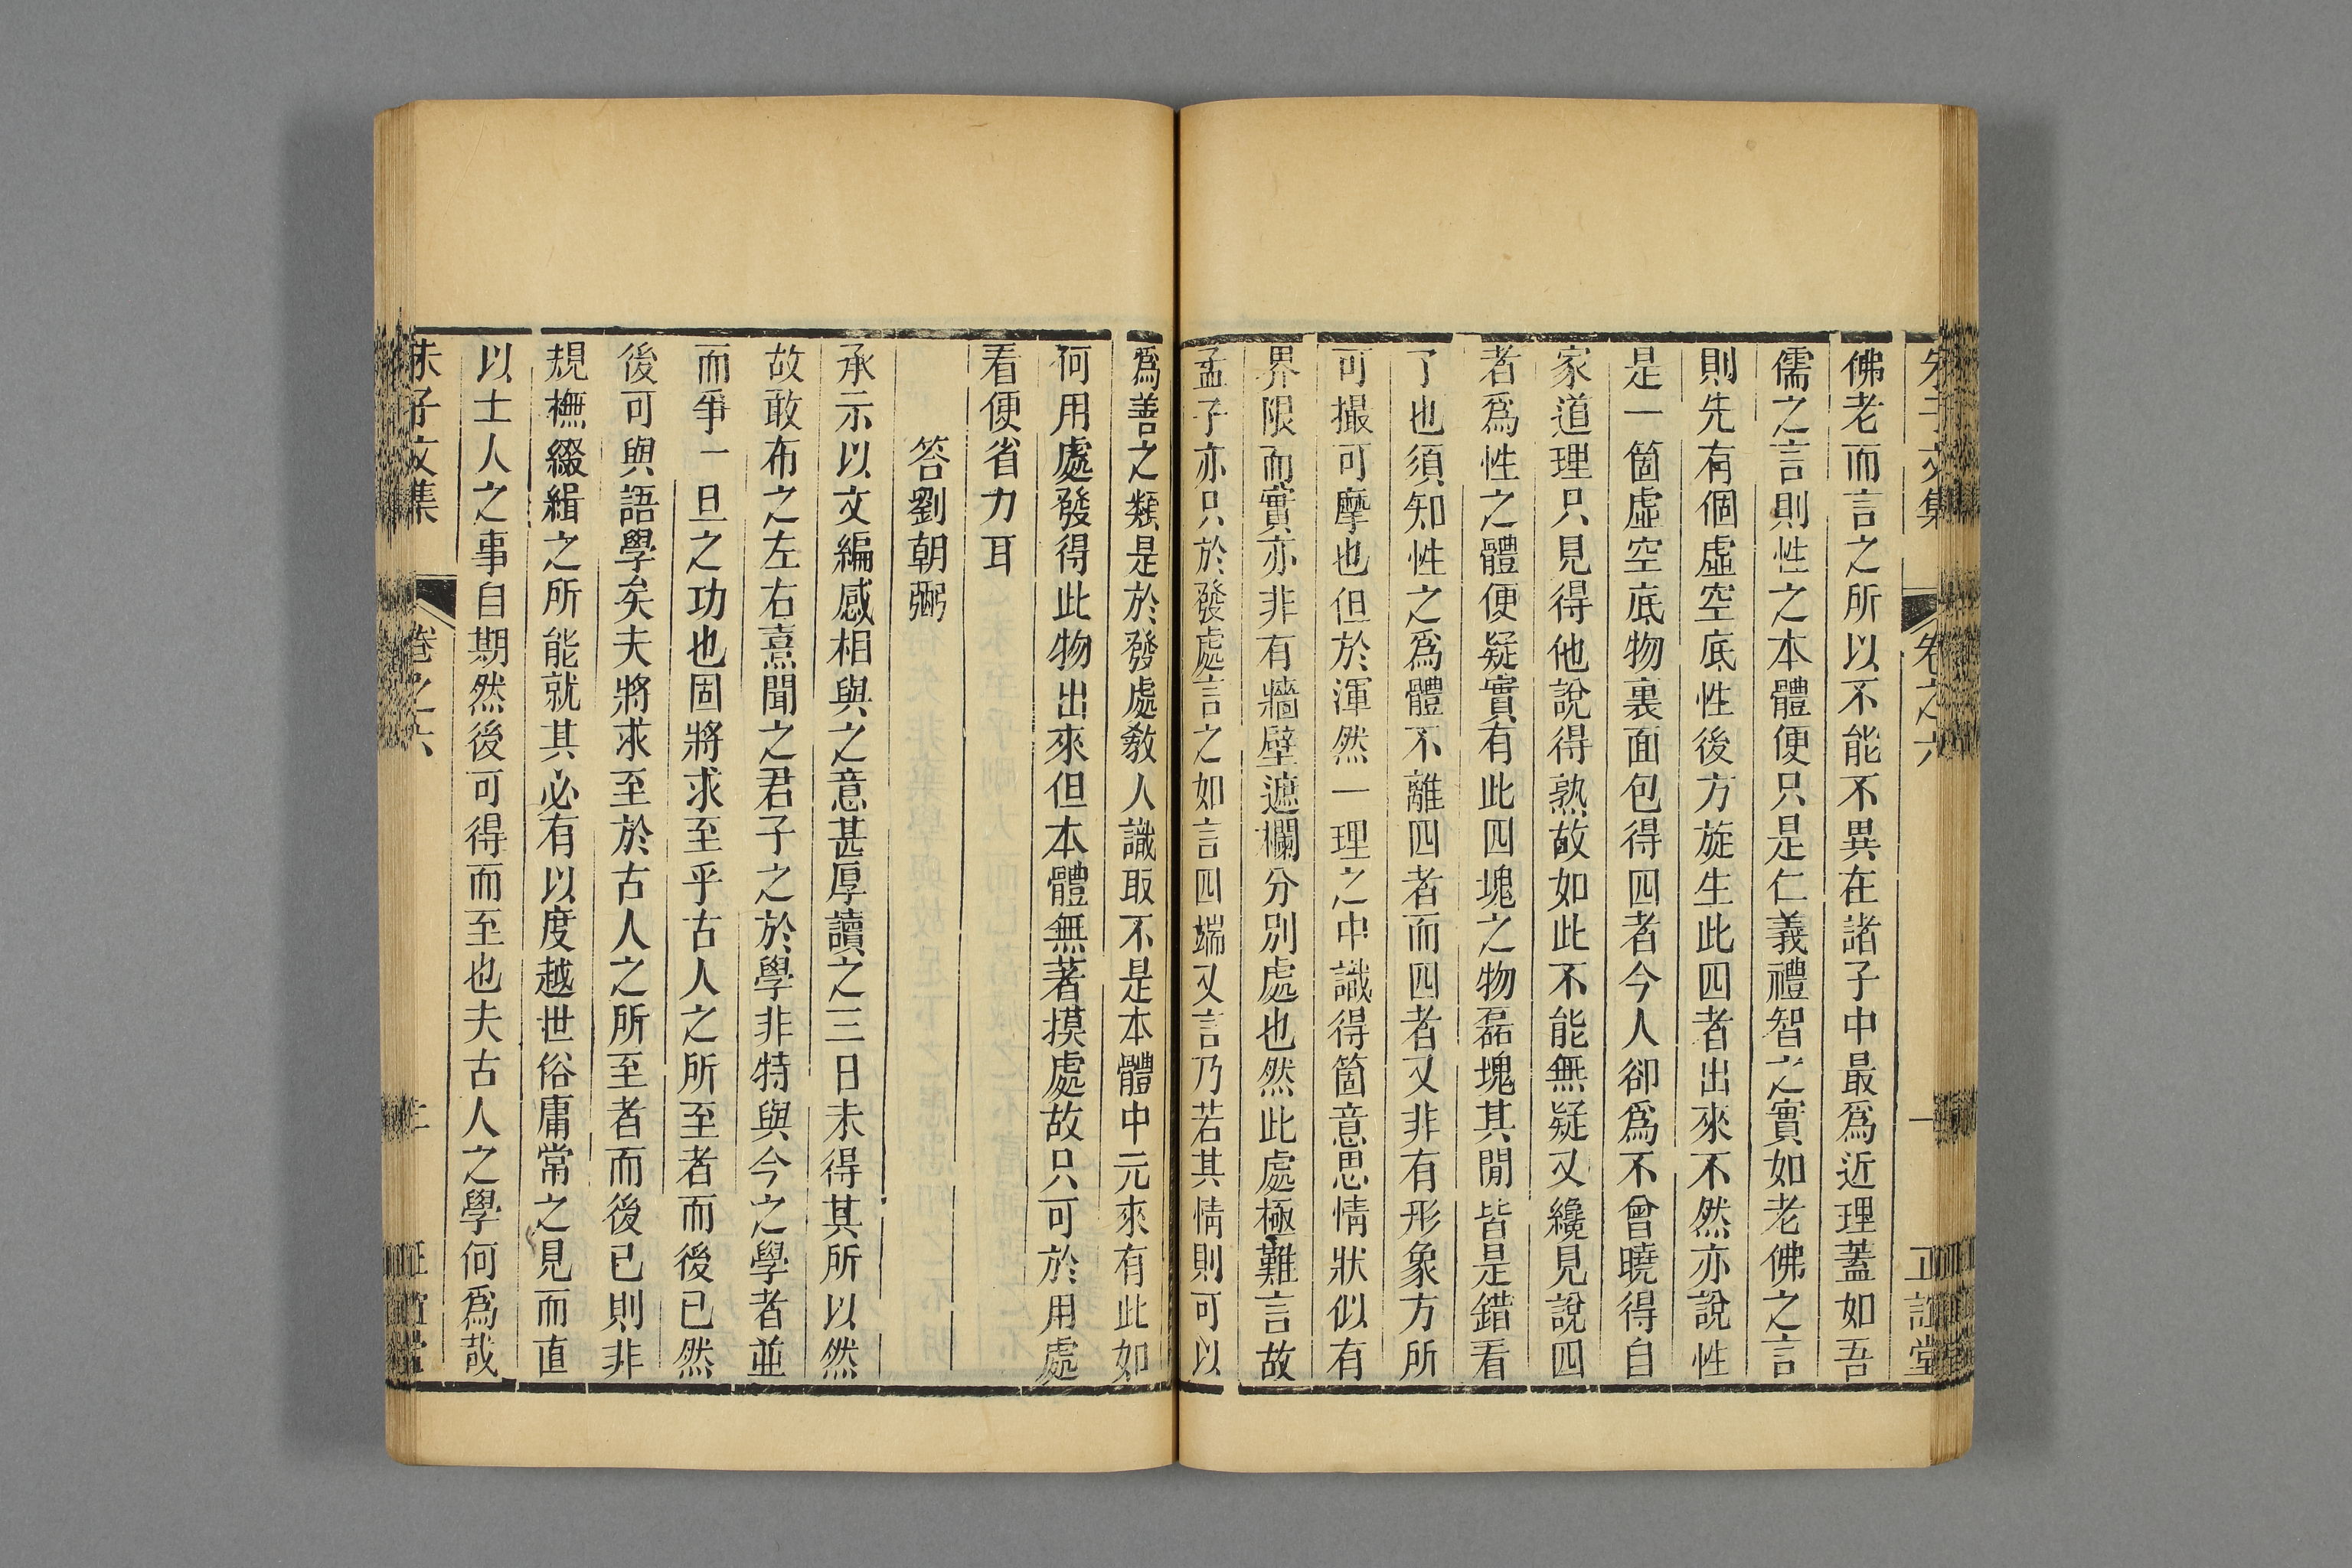 朱子文集 卷之六 一 正誼堂
佛老而言之所以不能不異在諸子中最爲近理蓋如吾
儒之言則性之本體便只是仁義禮智之實如老佛之言
則先有個虛空底性後方旋生此四者出來不然亦說性
是一箇虛空底物裏面包得四者今人卻爲不曾曉得自
家道理只見得他說得熟故如此不能無疑又纔見說四
者爲性之體便疑實有此四塊之物磊塊其閒皆是錯看
了也須知性之爲體不離四者而四者又非有形象方所
可撮可摩也但於渾然一理之中識得箇意思情狀似有
界限而實亦非有牆壁遮欄分別處也然此處極難言故
孟子亦只於發處言之如言四端又言乃若其情則可以
爲善之類是於發處教人識取不是本體中元來有此如
何用處發得此物出來但本體無著摸處故只可於用處
看便省力耳
答劉朝弼
承示以文編感相與之意甚厚讀之三日未得其所以然
故敢布之左右熹聞之君子之於學非特與今之學者並
而爭一旦之功也固將求至乎古人之所至者而後已然
後可與語學矣夫將求至於古人之所至者而後已則非
規橅綴緝之所能就其必有以度越世俗庸常之見而直
以士人之事自期然後可得而至也夫古人之學何爲哉
朱子文集 卷之六 正誼堂